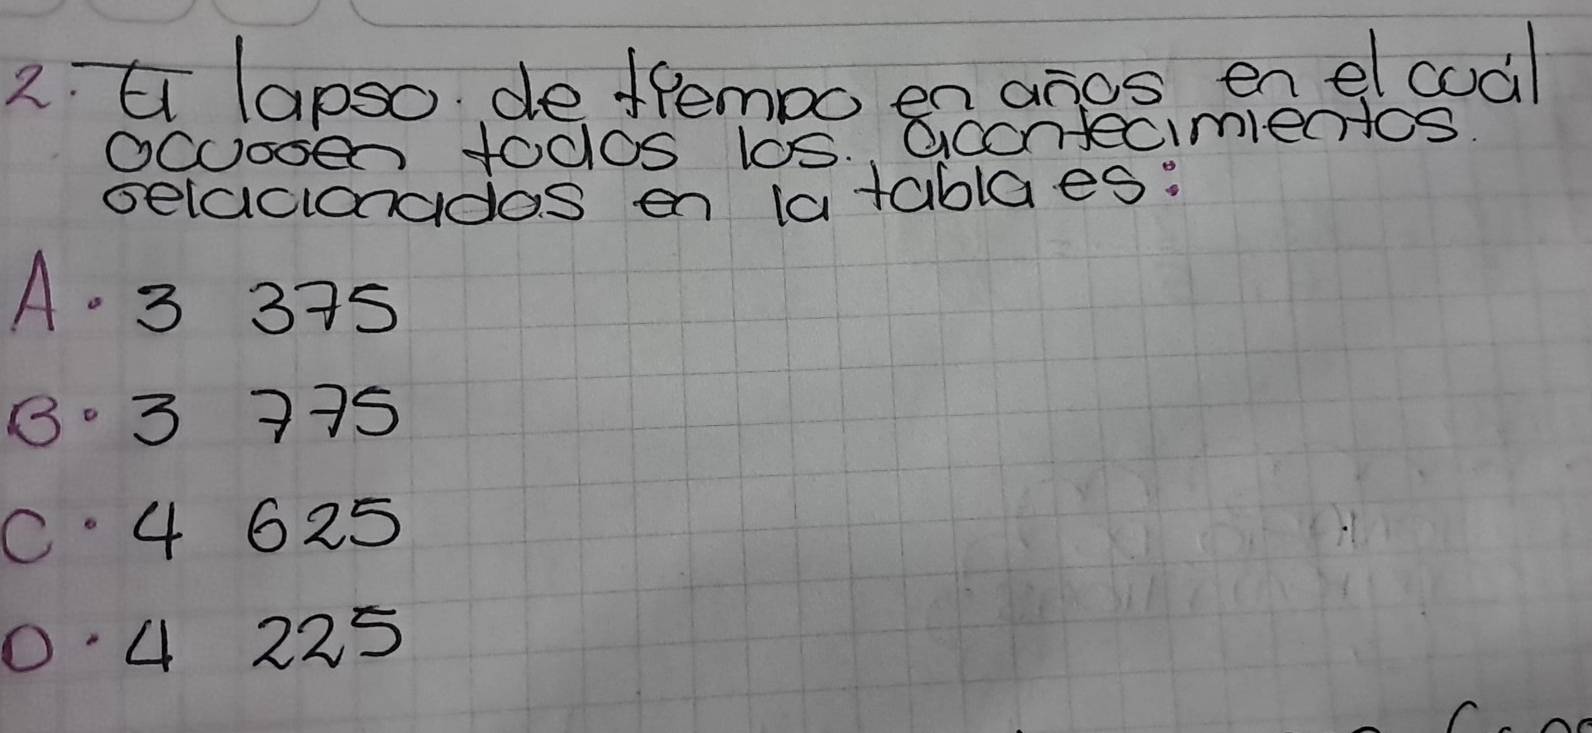 2. El lapso de tiempo en años en el cuál
ocurren todos los acontecimientos.
relacionados en la tabla es:
A. 3 375
B. 3 775
C. 4 625
D. 4 225